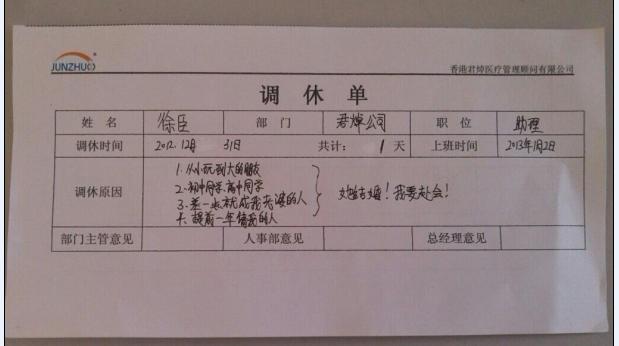 JUNZHUO
香港君焯医疗管理顾问有限公司
调休单
姓名 徐臣 部门 君焯公司 职位 助理
调休时间 2012.12月 31日 共计: 1 天 上班时间 2013年1月2日
调休原因
1.从小玩到大的朋友
2.初中同学、高中同学
3.差一点就成我老婆的人
4.提前一年
的人
她结婚!我要赴会!
部门主管意见 人事部意见 总经理意见